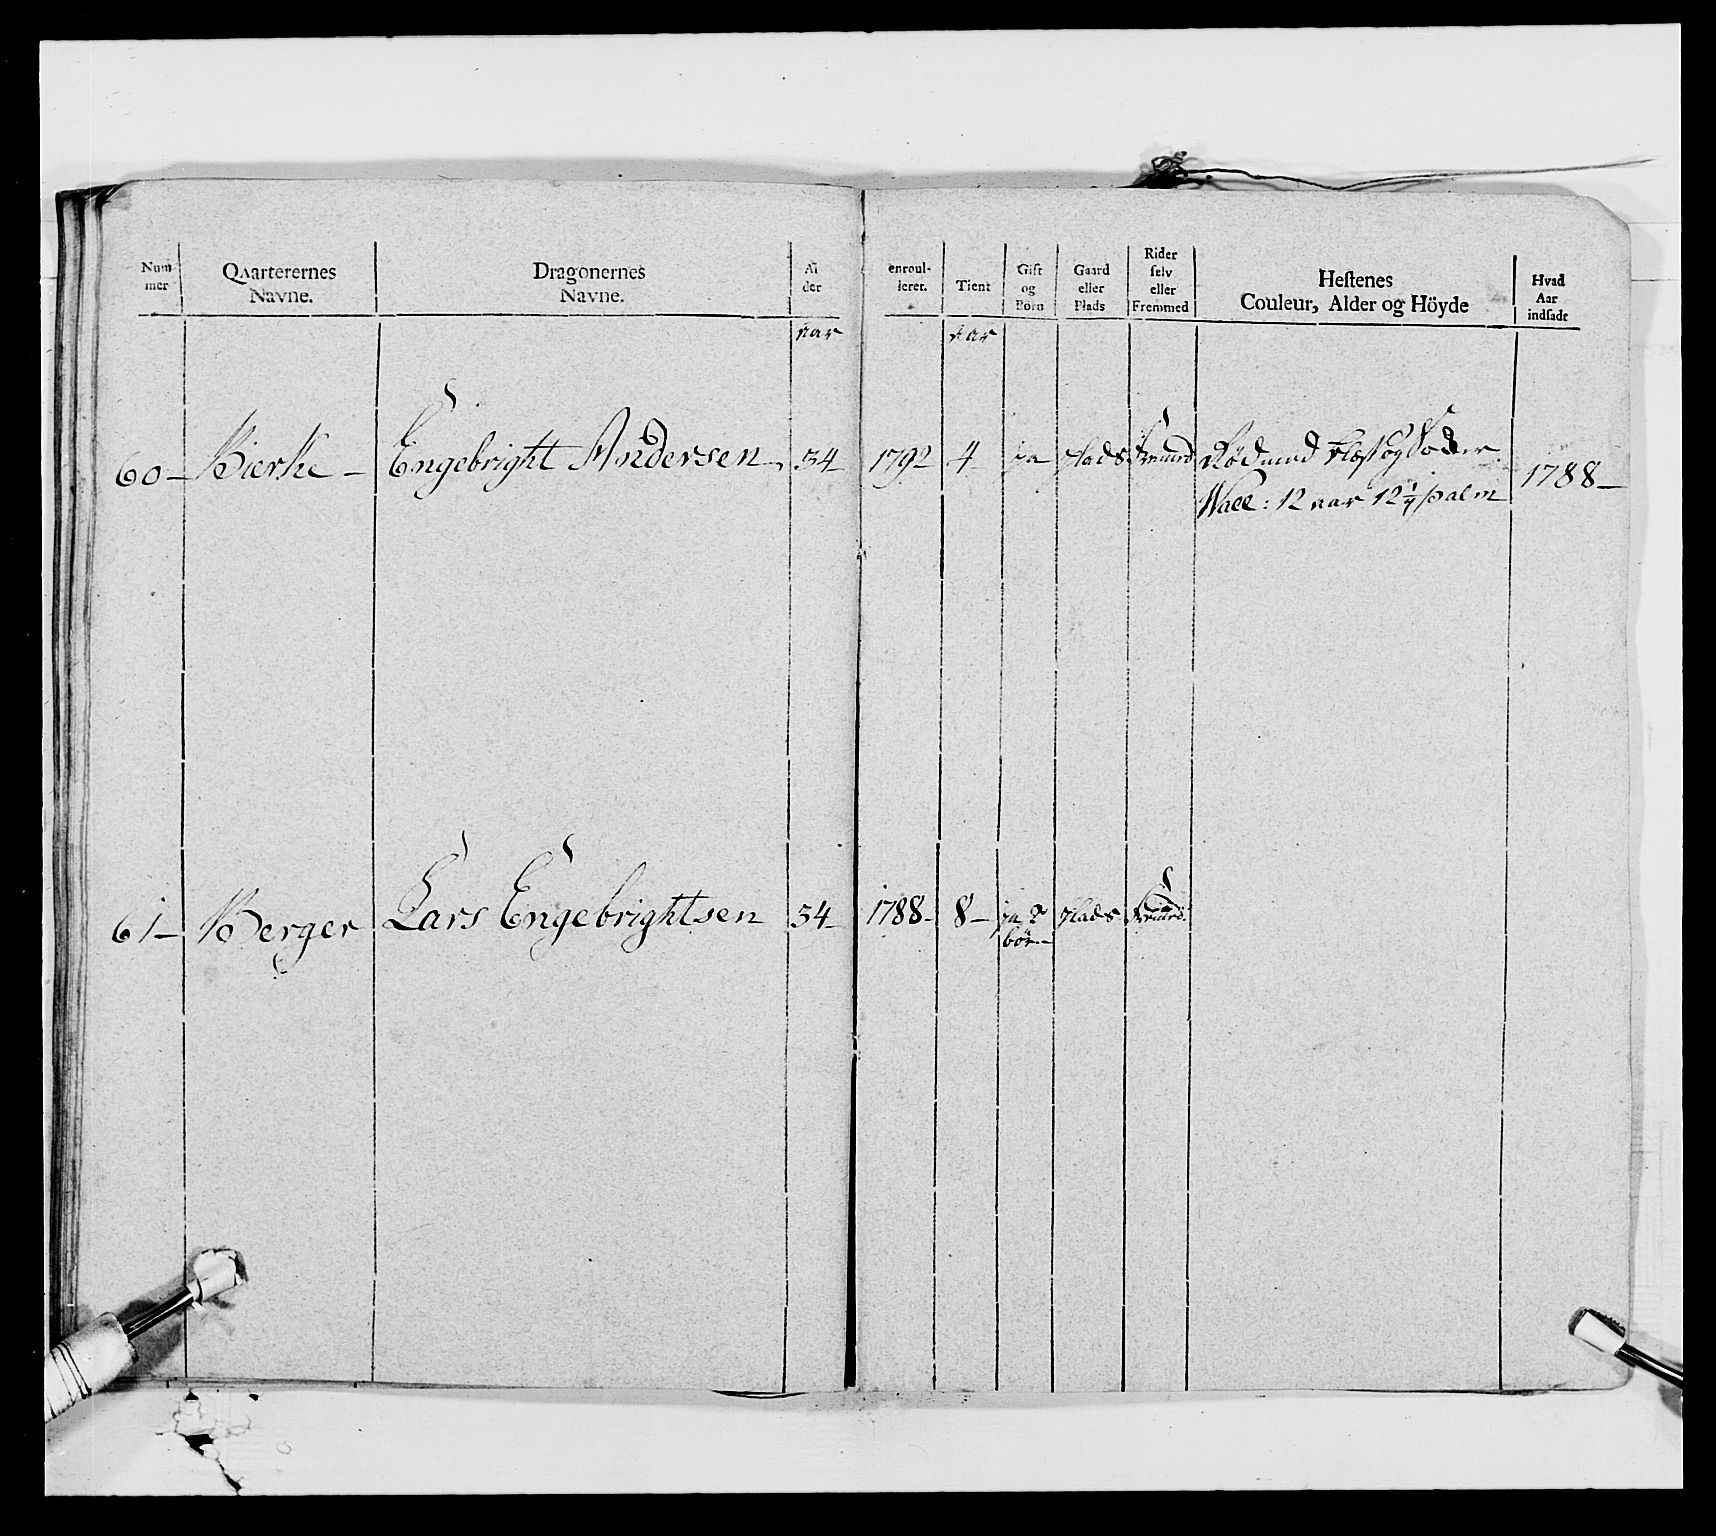 Num-
mer
Qvarterernes
Navne.
Dragonernes
Navne.
Al
der
enroul-
leret.
Tient
Gift
og
Börn
Gaard
eller
Plads
Rider
selv
eller
Fremmed
Hestenes
Couleur, Alder og Höyde
Hvad
Aar
indsadt
aar
aar
60- Bierke - Engebright Andersen 34 1792 4 ja plads Fremd Rød med og
Wall: 12 aar 12 1/4 palm
1788-
61- Berger Lars Engebrightsen 34- 1788- 8- ja 2 plads Fremd
børn